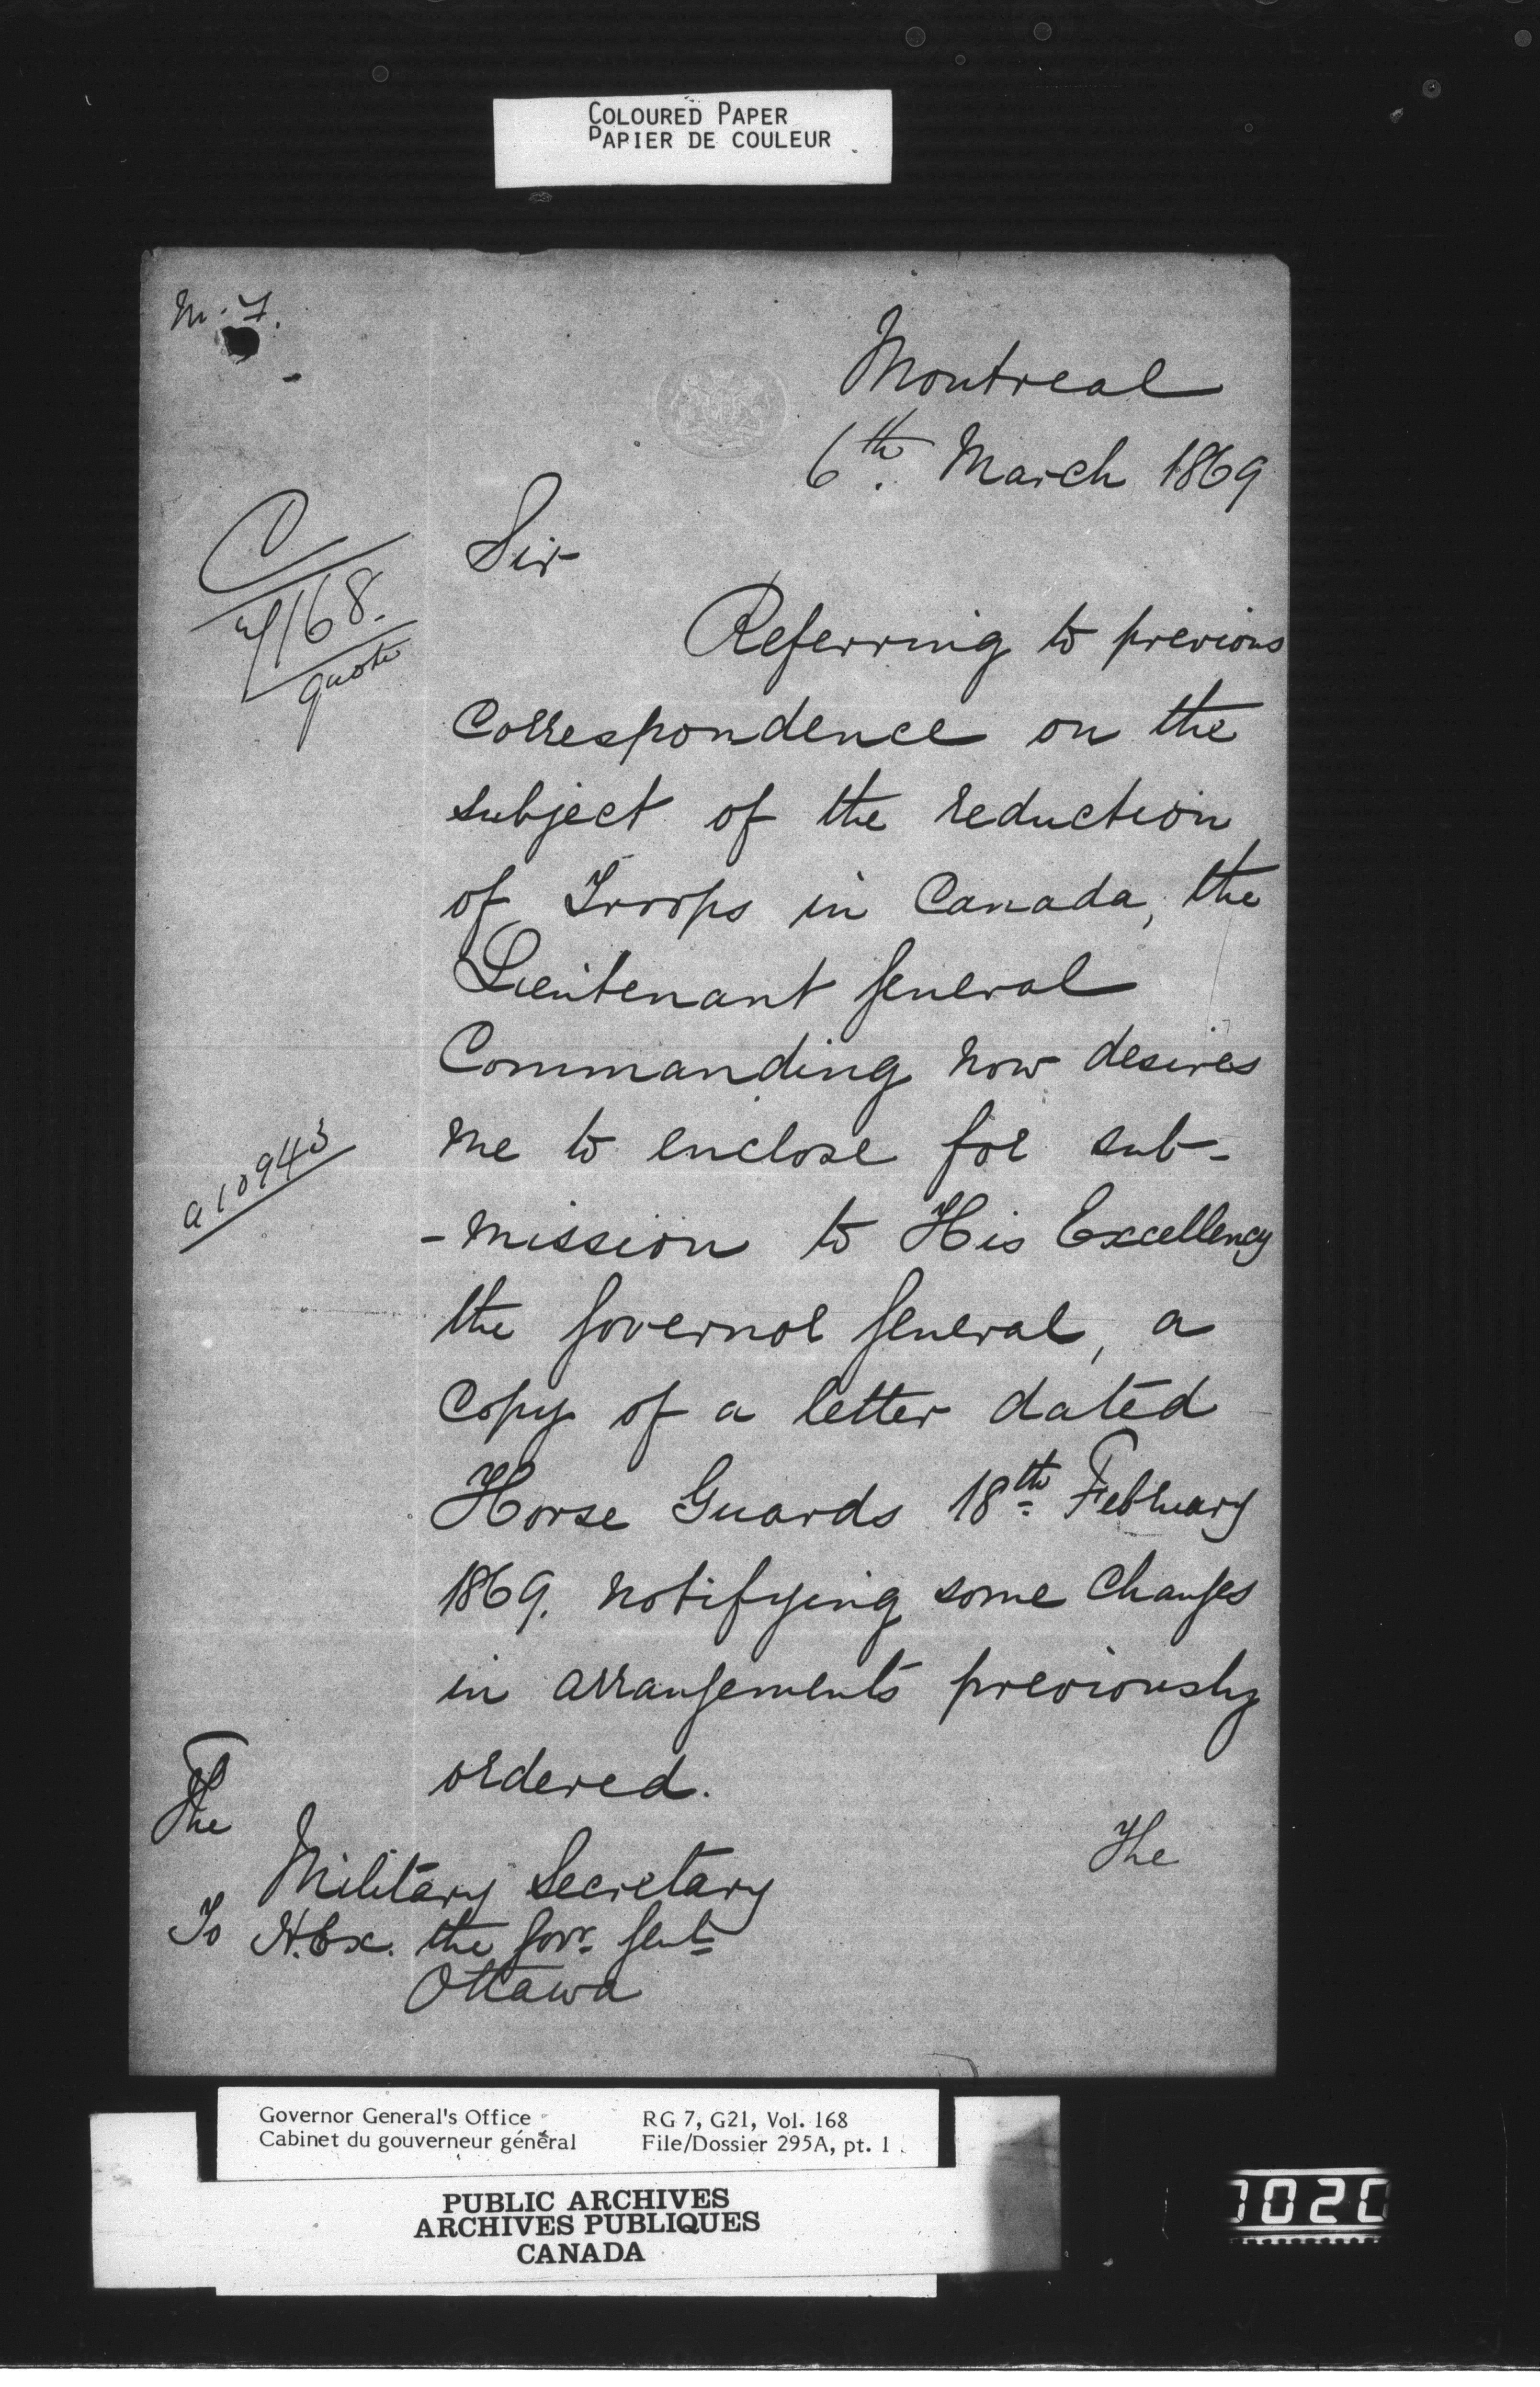 COLOURED PAPER
PAPIER DE COULEUR
Montreal
6th. March 1869
C
168.
quote
Sir
Referring to previous
Correspondence on the
subject of the reduction
of Troops in Canada, the
Lieutenant General
Commanding now desires
me to enclose for sub-
-mission to His Excellency
the Governor General, a
Copy of a letter dated
Horse Guards 18th February
1869. notifying some Changes
in arrangements previously
ordered.
The
a 10943
The
Military Secretary
To H.Ex. the Govr. Genl.
Ottawa
Governor General's Office
Cabinet du gouverneur général
RG 7, G21, Vol. 168
File/Dossier 295A, pt. 1
PUBLIC ARCHIVES
ARCHIVES PUBLIQUES
CANADA